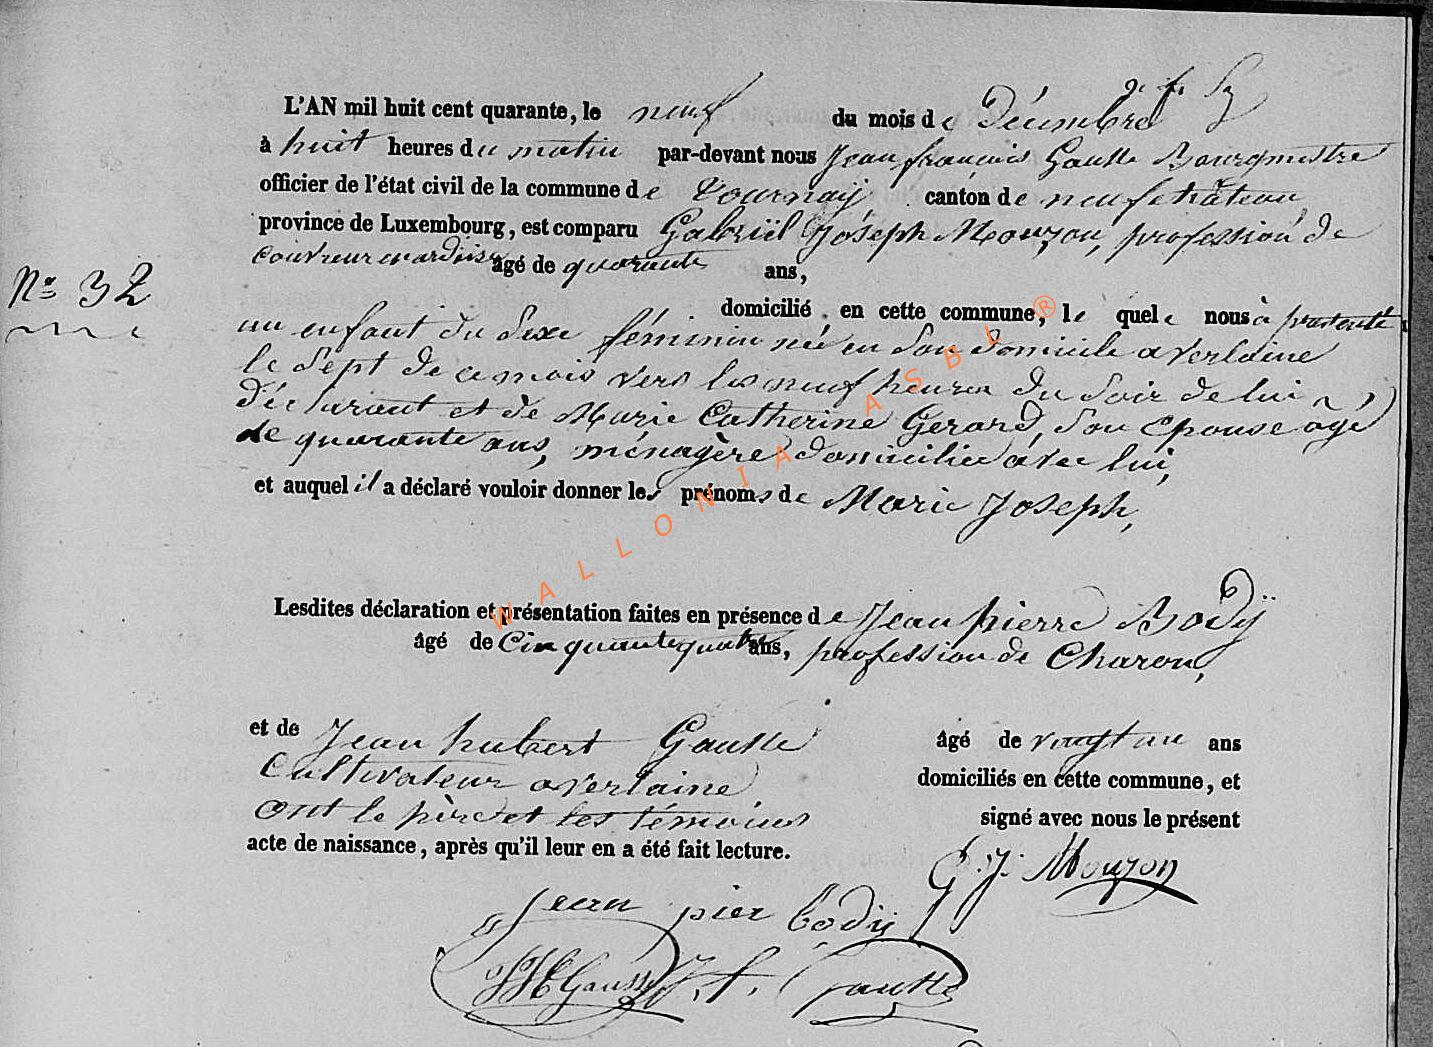 L'AN mil huit cent quarante, le neuf du mois de Décembre
à huit heures du matin par-devant nous Jean françois Gausse Bourgmestre
officier de l'état civil de la commune de Tournaÿ canton de neufchâteau,
province de Luxembourg, est comparu Gabriël Jóseph Mouzon, profession de
couvreur en ardoises âgé de quarante ans,
N° 32
domicilié en cette commune, le quel nous à présenté
un enfant du Sexe féminin née en Son domicile a verlaine
le Sept de ce mois vers les neuf heures du Soir de lui
déclarant et de Marie Catherine Gerard, Son Epouse agé
de quarante ans, ménagère domiciliée avec lui,
et auquel il a déclaré vouloir donner les prénoms de Marie Joseph,
Lesdites déclaration et présentation faites en présence de Jean pierre Bodÿ
âgé de Cinquante quatre ans, profession de Charon,
et de Jean hubert Gausse âgé de vingt un ans
Cultivateur a verlaine domiciliés en cette commune, et
ont le père et les témoins signé avec nous le présent
acte de naissance, après qu'il leur en a été fait lecture.
G. J. Mouzon
jean pier bodÿ
JH Gausse J. f. Gausse
WALLONIA ASBL ®